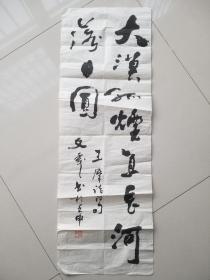 大漠孤煙直長河
落日圓
王摩詰句
文 書於 申